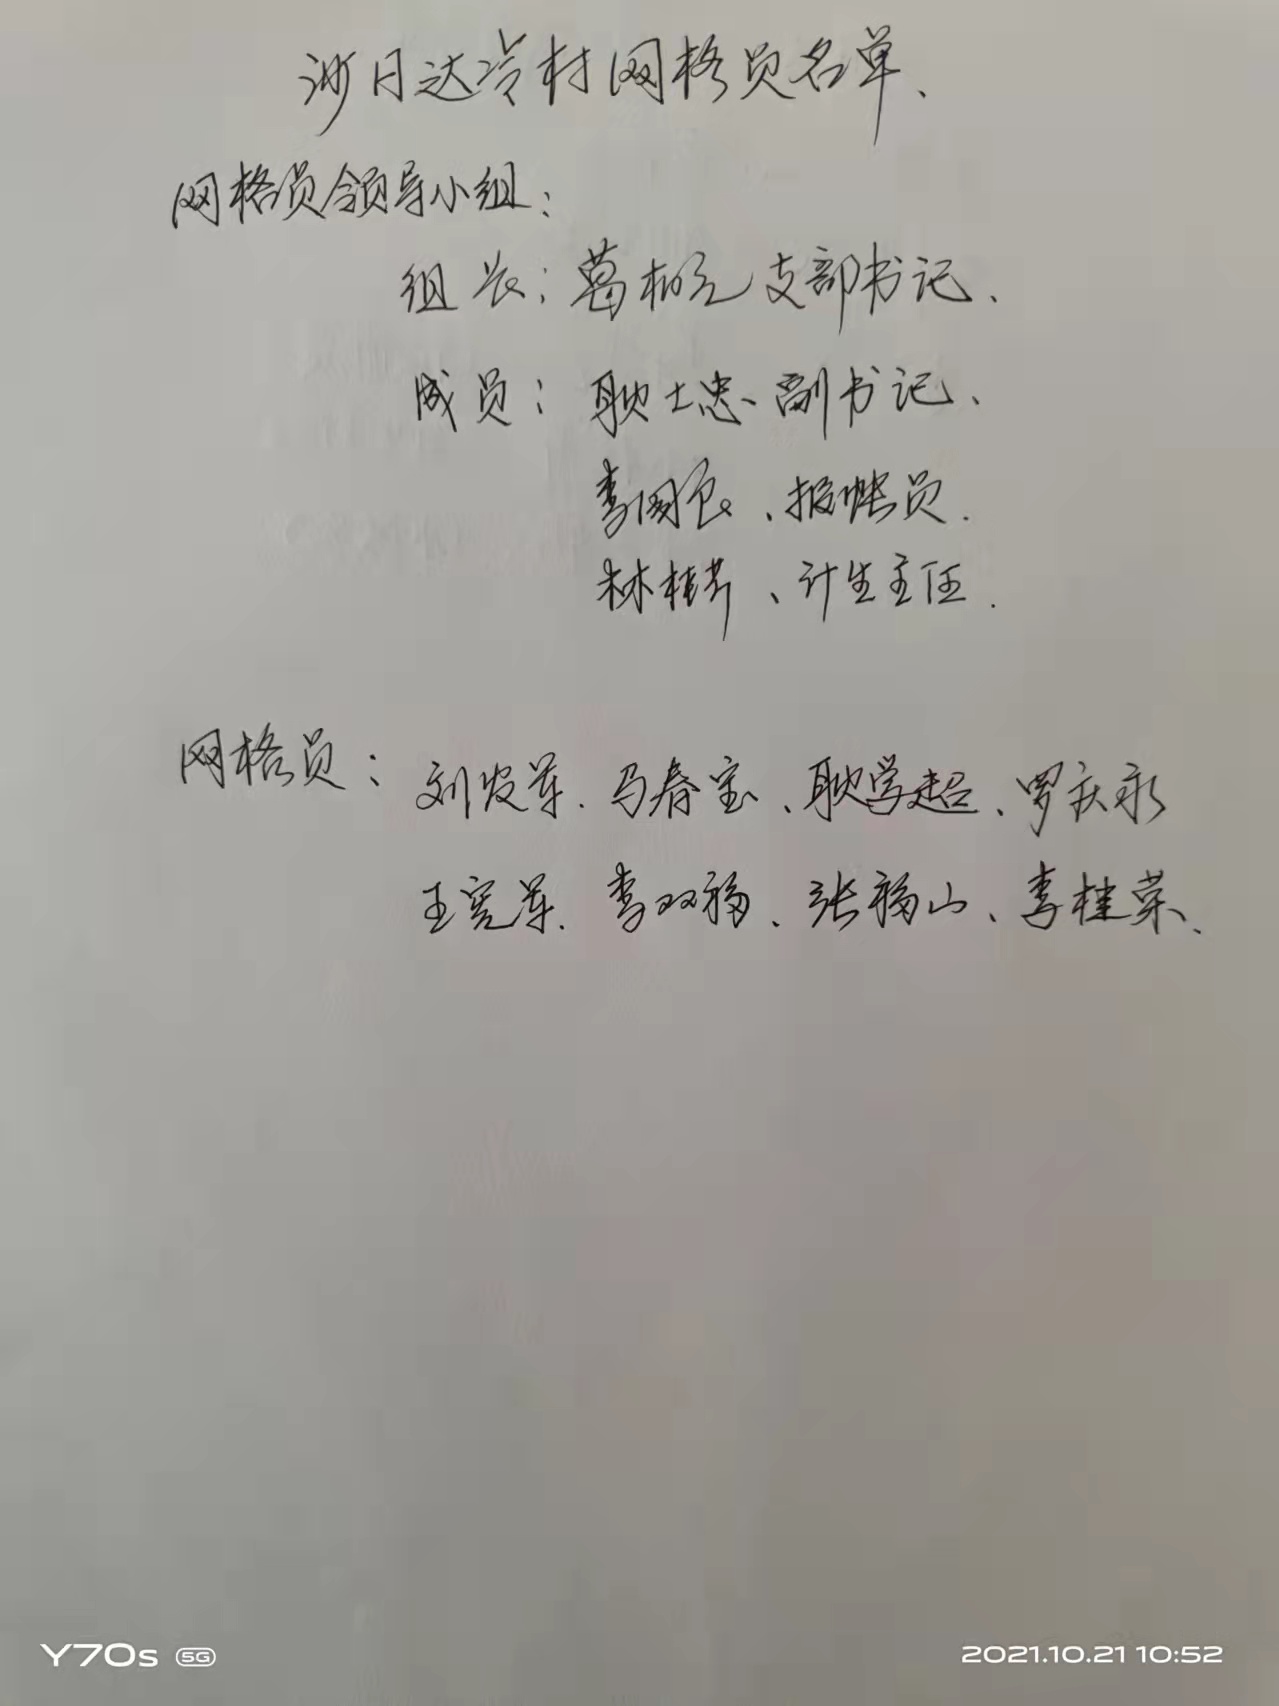 沙日达冷村网格员名单、
网格员领导小组：
组长：葛柏元 支部书记、
成员：耿士忠、副书记、
李国良、报帐员.
林桂芹、计生主任.
网格员：刘发军.马春宝、耿学超、罗庆永
王宪军.李双福、张福山、李桂荣、
Y70s 5G
2021.10.21 10:52